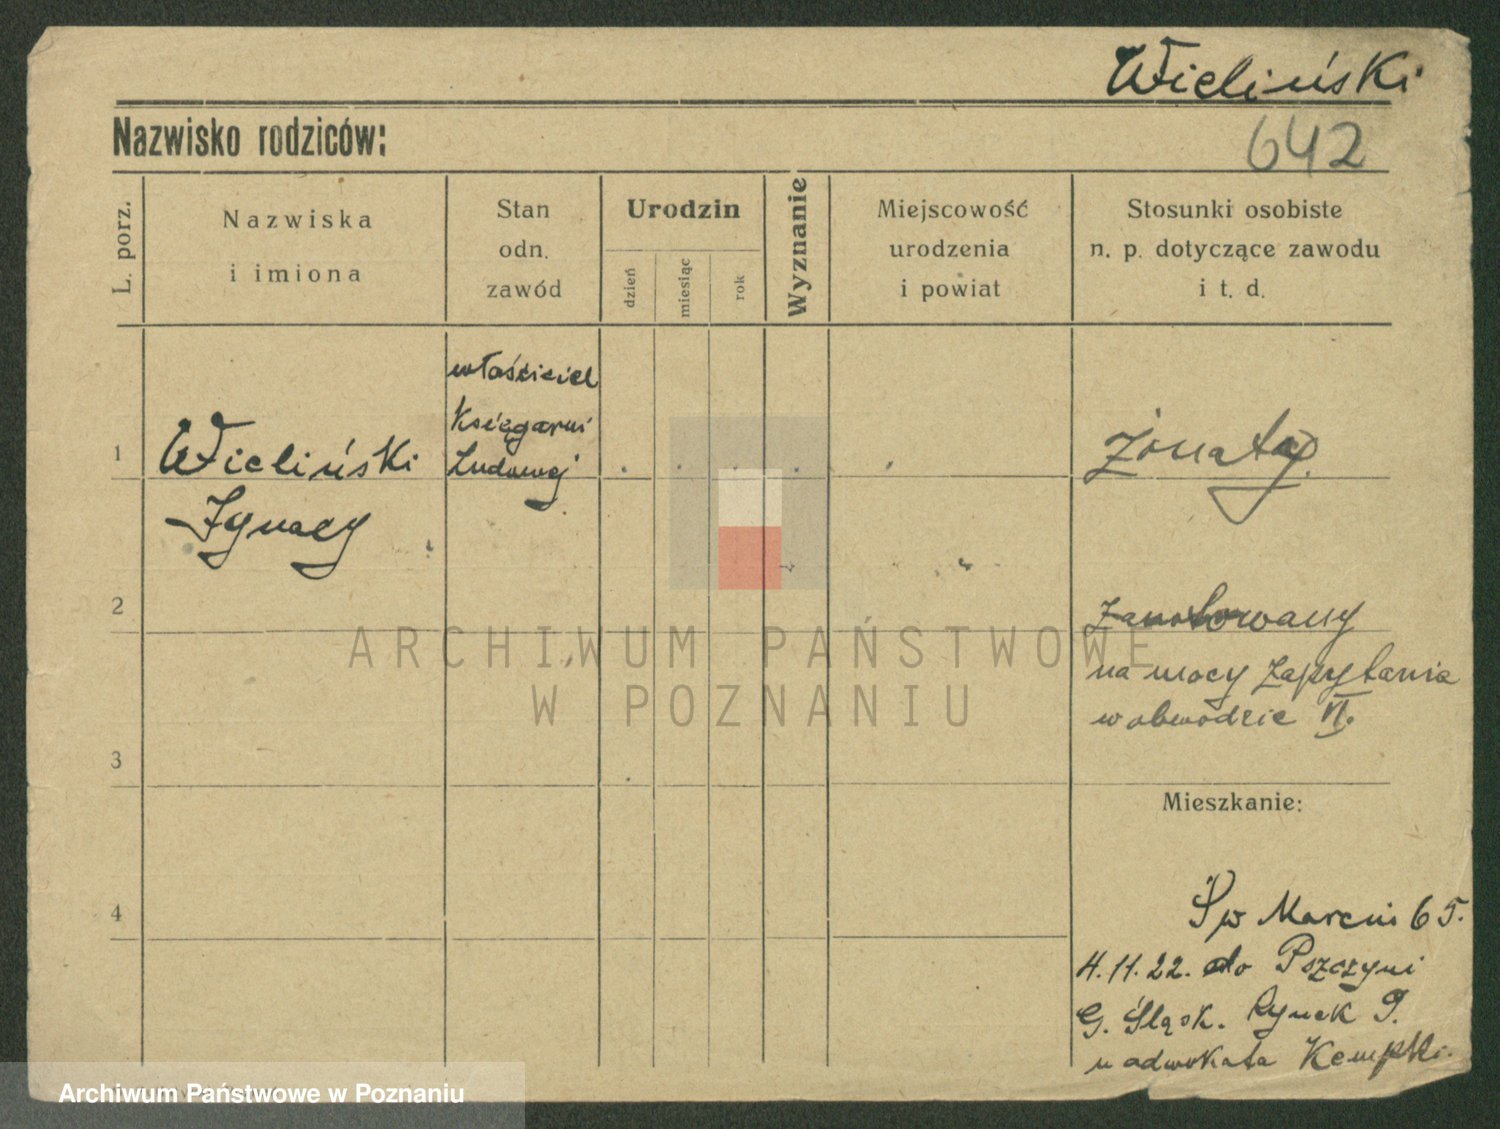 Wieliński
Nazwisko rodziców:
642
L. porz.
Nazwiska
i imiona
Stan
odn.
zawód
Urodzin
dzień
miesiąc
rok
Wyznanie
Miejscowość
urodzenia
i powiat
Stosunki osobiste
n. p. dotyczące zawodu
i t. d.
1
Wieliński
Ignacy
właściciel
Księgarni
Ludowej
żonaty
2
zanotowany
na mocy zapytania
w obwodzie VI.
3
Mieszkanie:
4
Św Marcin 65.
4.11.22. do Pszczyni
G. Śląsk. Rynek 9.
u adwokata Kempki.
ARCHIWUM PAŃSTWOWE
W POZNANIU
Archiwum Państwowe w Poznaniu